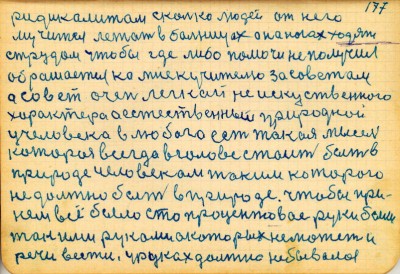 177
радикалитам сколко людей от него
мучится летат в болницах она ногах ходят
струдом чтобы где либо помочи неполучил
обращается ко мне кучителю засоветам
а совет очен легкай неискуственного
характера аестественный природной
учеловека влюбога сет такая мысел
которая всегда вголове стоит быть в
природе человекам таким которого
недолтно быть вприроде. чтобы при-
нем всё было стопроцентовае руки были
такими руками акоторых неможет и
речи вести, уродках долтно небывало